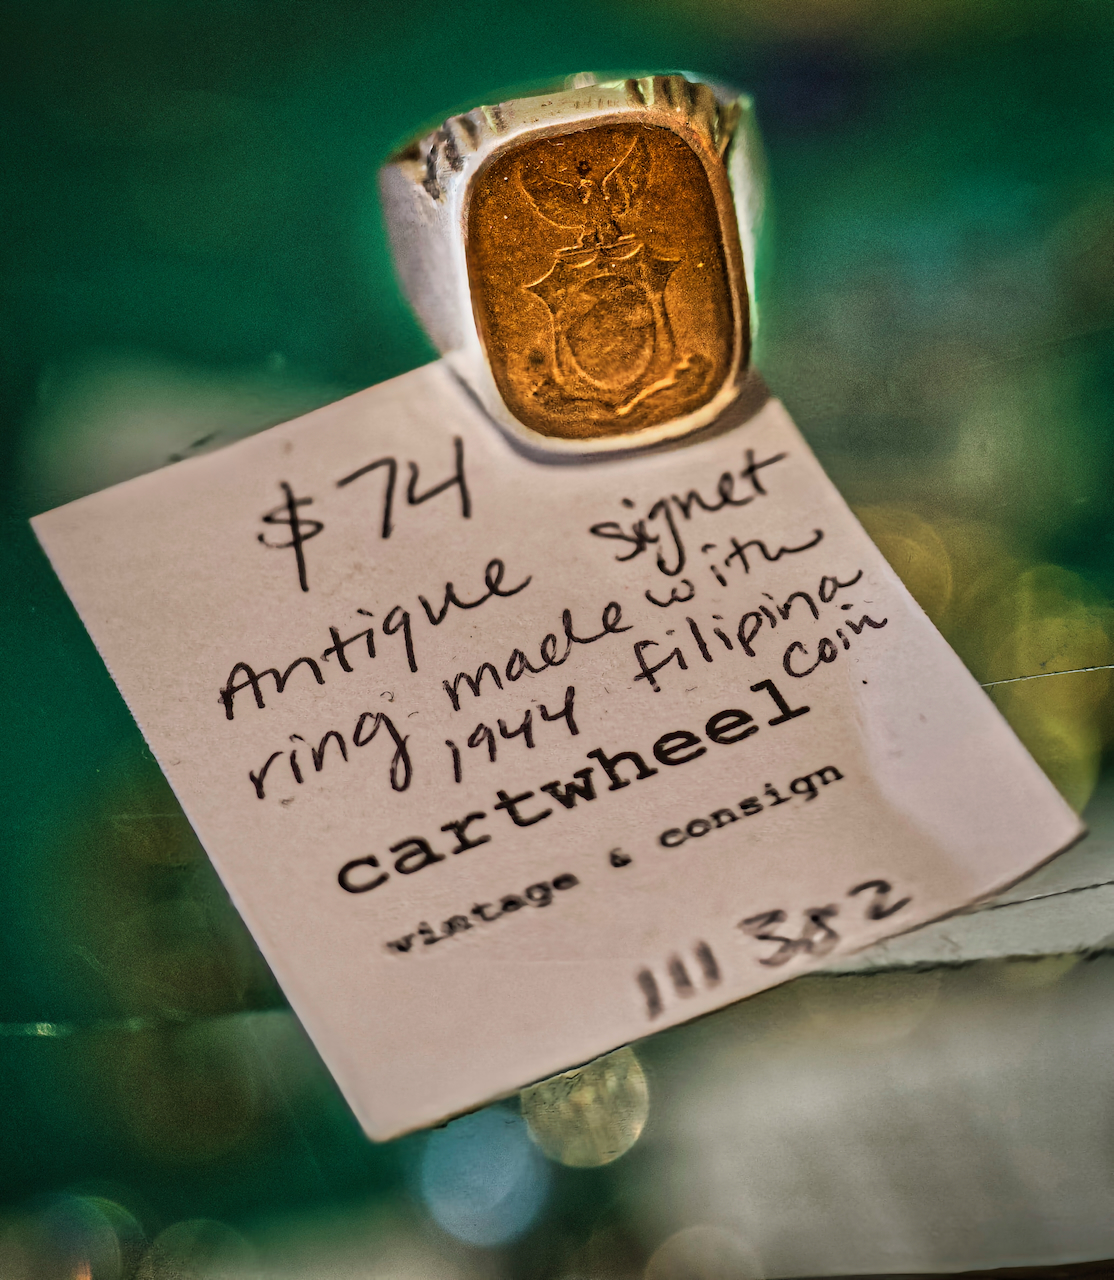 $74
Antique signet
ring made with
1944 filipina
coin
cartwheel
vintage & consign
111 382